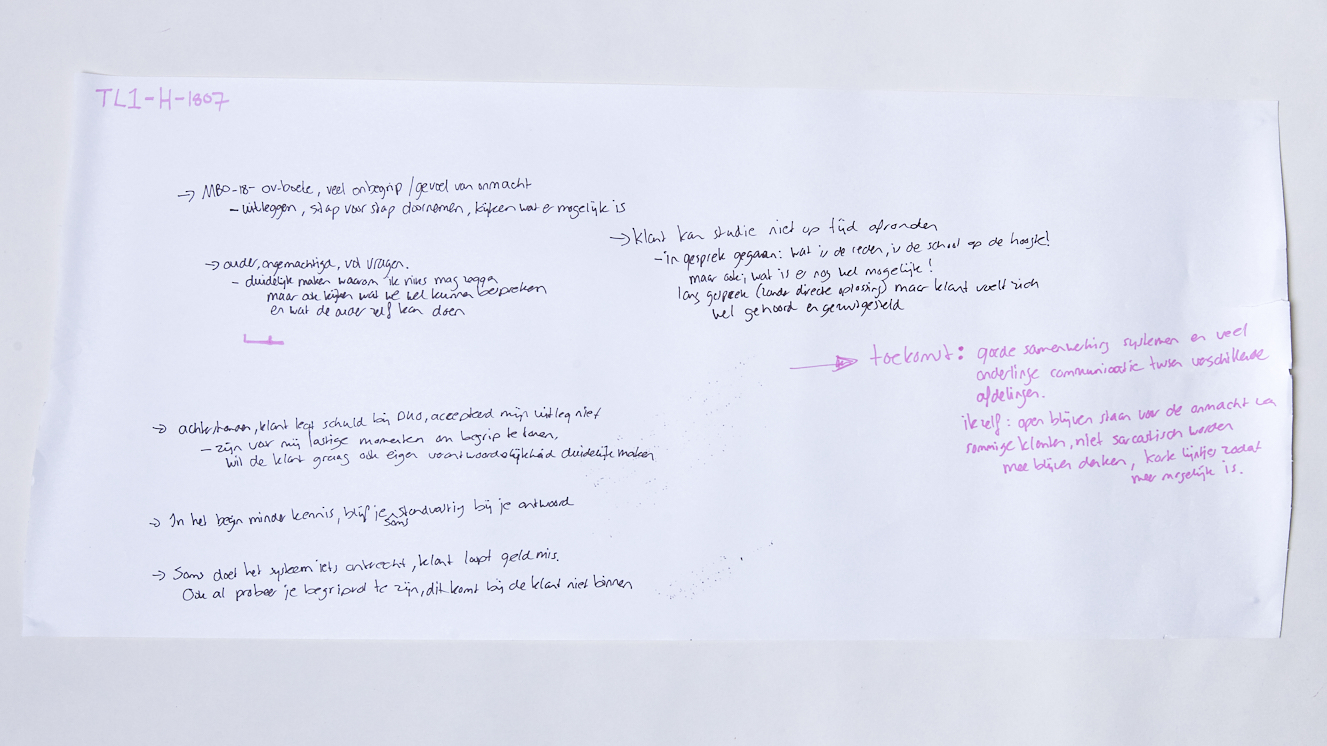 TL1-H-1807
→ MBO-18- ov-boete, veel onbegrip/gevoel van onmacht
- uitleggen, stap voor stap doornemen, kijken wat er mogelijk is
→ ouder, ongemachtigd, vol vragen.
- duidelijk maken waarom ik niks mag zeggen
maar ook kijken wat we wel kunnen bespreken
en wat de ouder zelf kan doen
→ klant kan studie niet op tijd afronden
- in gesprek gegaan: wat is de reden, is de school op de hoogte!
maar ook; wat is er nog wel mogelijk!
lang gesprek (zonder directe oplossing) maar klant voelt zich
wel gehoord en gerustgesteld
→ toekomst: goede samenwerking systemen en veel
onderlinge communicatie tussen verschillende
afdelingen.
ik zelf: open blijven staan voor de onmacht van
sommige klanten, niet sarcastisch worden
mee blijven denken, korte lijntjes zodat
meer mogelijk is.
→ achterstanden, klant legt schuld bij DUO, accepteerd mijn uitleg niet
- zijn voor mij lastige momenten om begrip te tonen,
wil de klant graag ook eigen verantwoordelijkheid duidelijk maken
→ In het begin minder kennis, blijf je soms standvastig bij je antwoord
→ Soms doet het systeem iets onterecht, klant loopt geld mis.
Ook al probeer je begripvol te zijn, dit komt bij de klant niet binnen